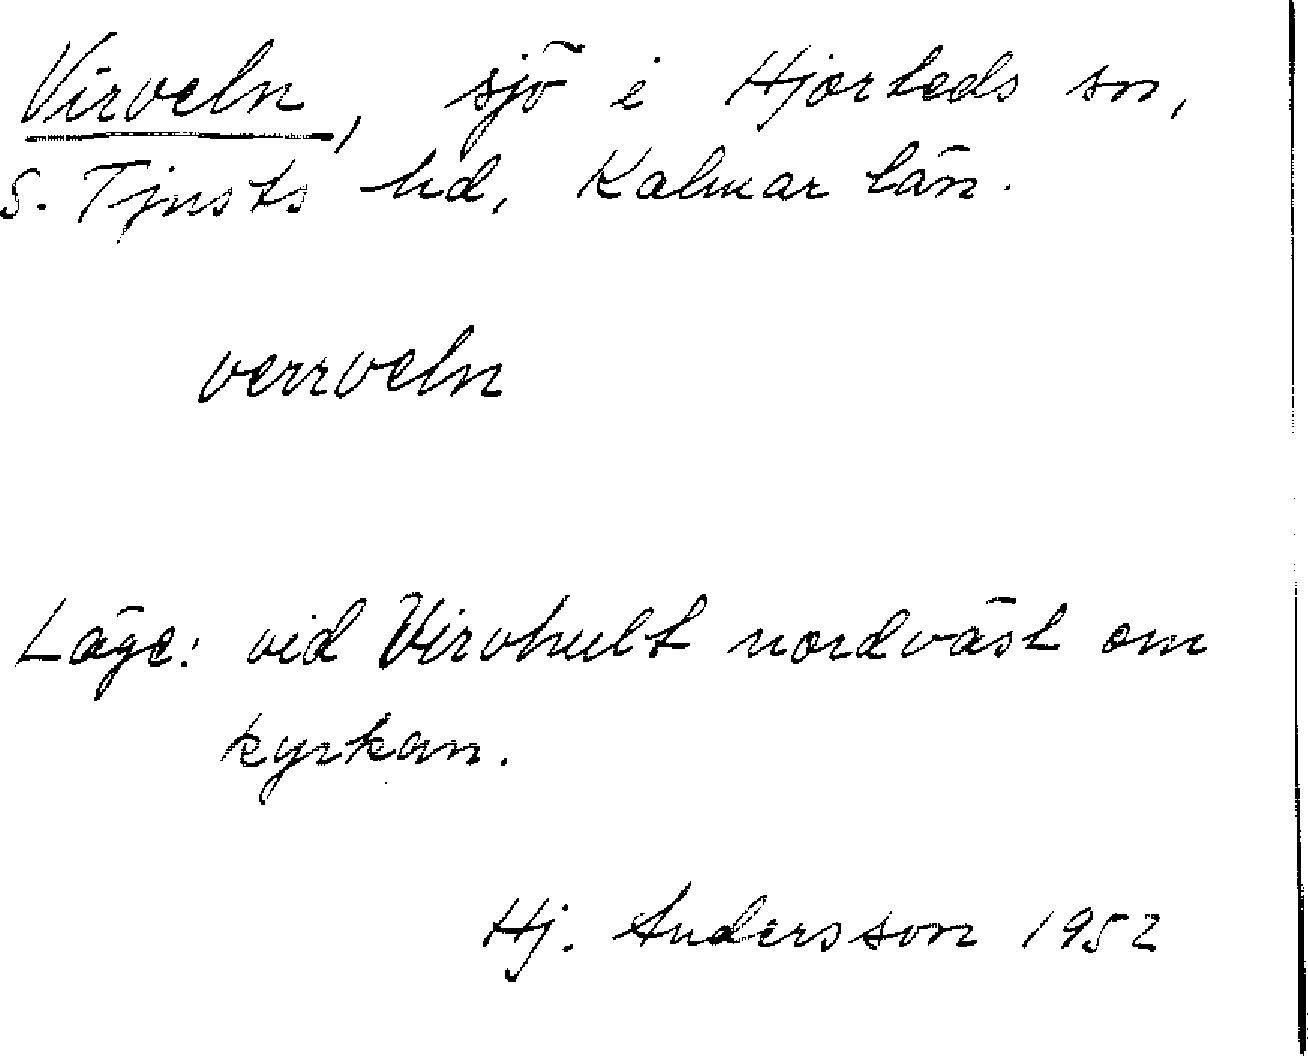 Virveln, sjö i Hjorteds sn,
S. Tjusts hd, Kalmar län.
verrveln
Läge: vid Virvhult nordväst om
kyrkan.
Hj. Andersson 1952